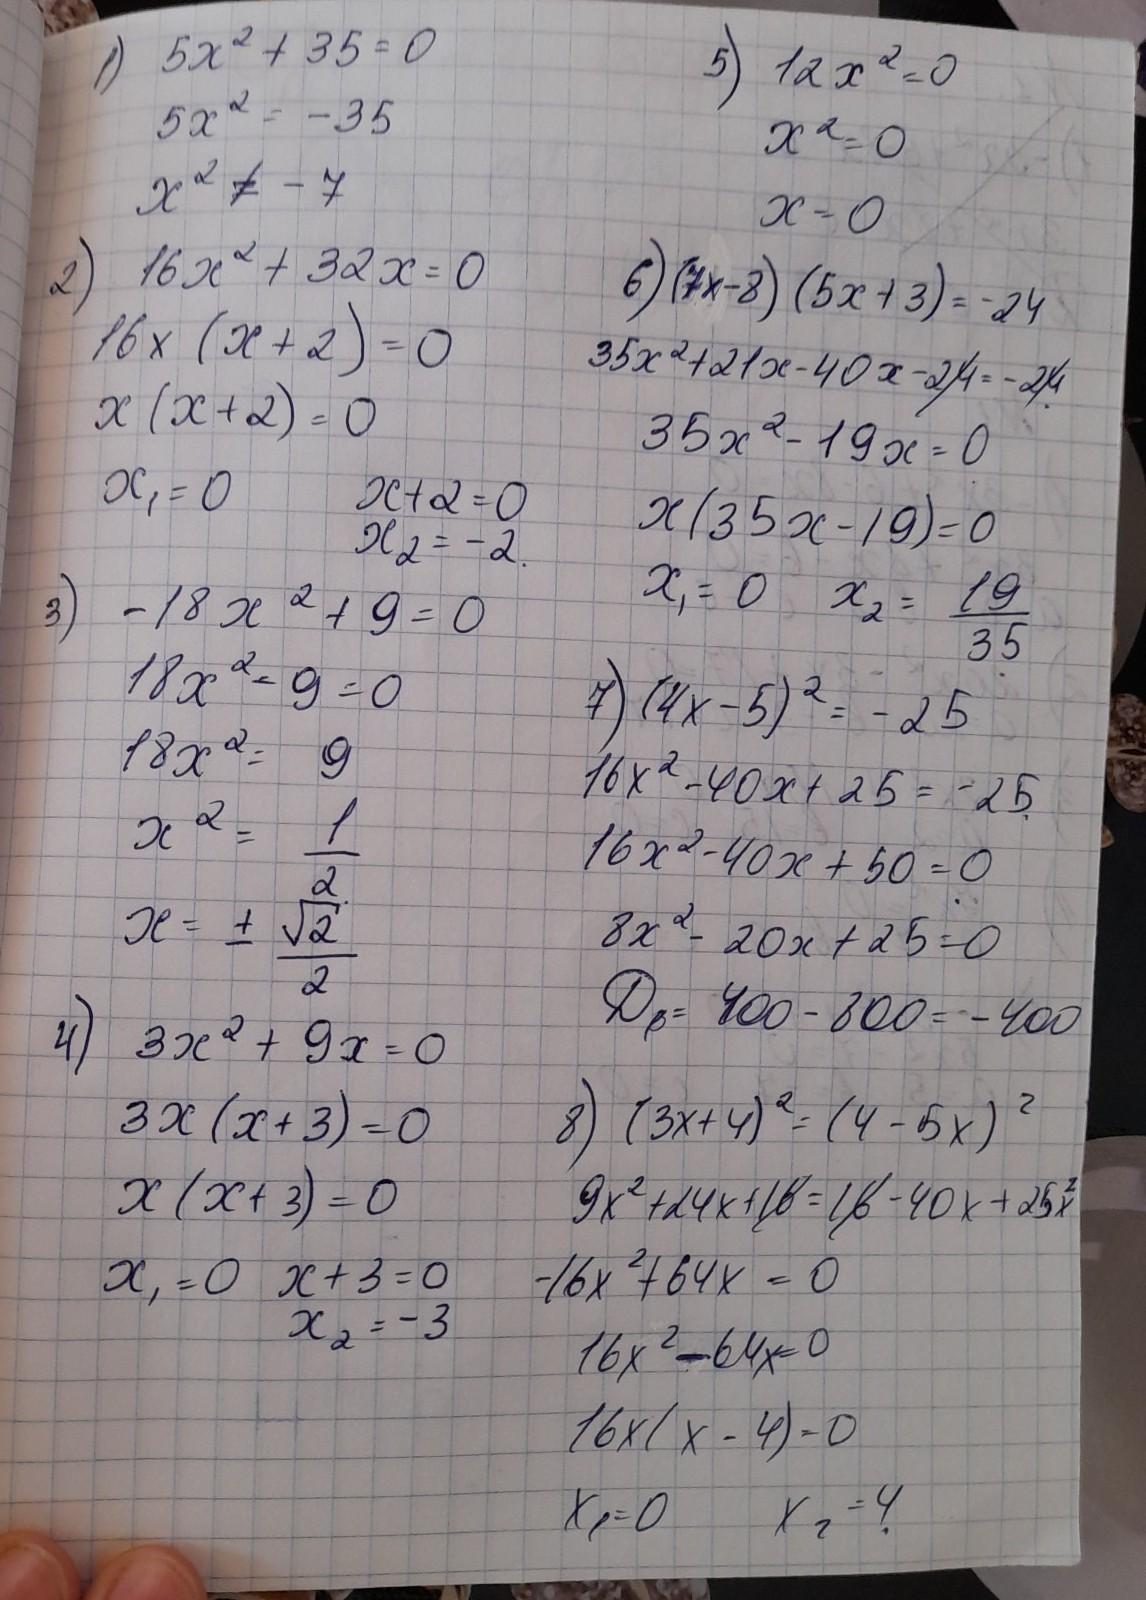 1) 5x² + 35 = 0
5x² = -35
x² ≠ -7
2) 16x² + 32x = 0
16x (x + 2) = 0
x (x + 2) = 0
x₁ = 0 x + 2 = 0
x₂ = -2.
3) -18x² + 9 = 0
18x² - 9 = 0
18x² = 9
x² = 1/2
x = ± √2/2
4) 3x² + 9x = 0
3x (x + 3) = 0
x (x + 3) = 0
x₁ = 0 x + 3 = 0
x₂ = -3
5) 12x² = 0
x² = 0
x = 0
6) (7x - 8) (5x + 3) = -24
35x² + 21x - 40x - 24 = -24.
35x² - 19x = 0
x (35x - 19) = 0
x₁ = 0 x₂ = 19/35
7) (4x - 5)² = -25
16x² - 40x + 25 = -25.
16x² - 40x + 50 = 0
8x² - 20x + 25 = 0
D₁ = 400 - 800 = -400
8) (3x + 4)² = (4 - 5x)²
9x² + 24x + 16 = 16 - 40x + 25x²
-16x² + 64x = 0
16x² - 64x = 0
16x (x - 4) = 0
x₁ = 0 x₂ = 4.